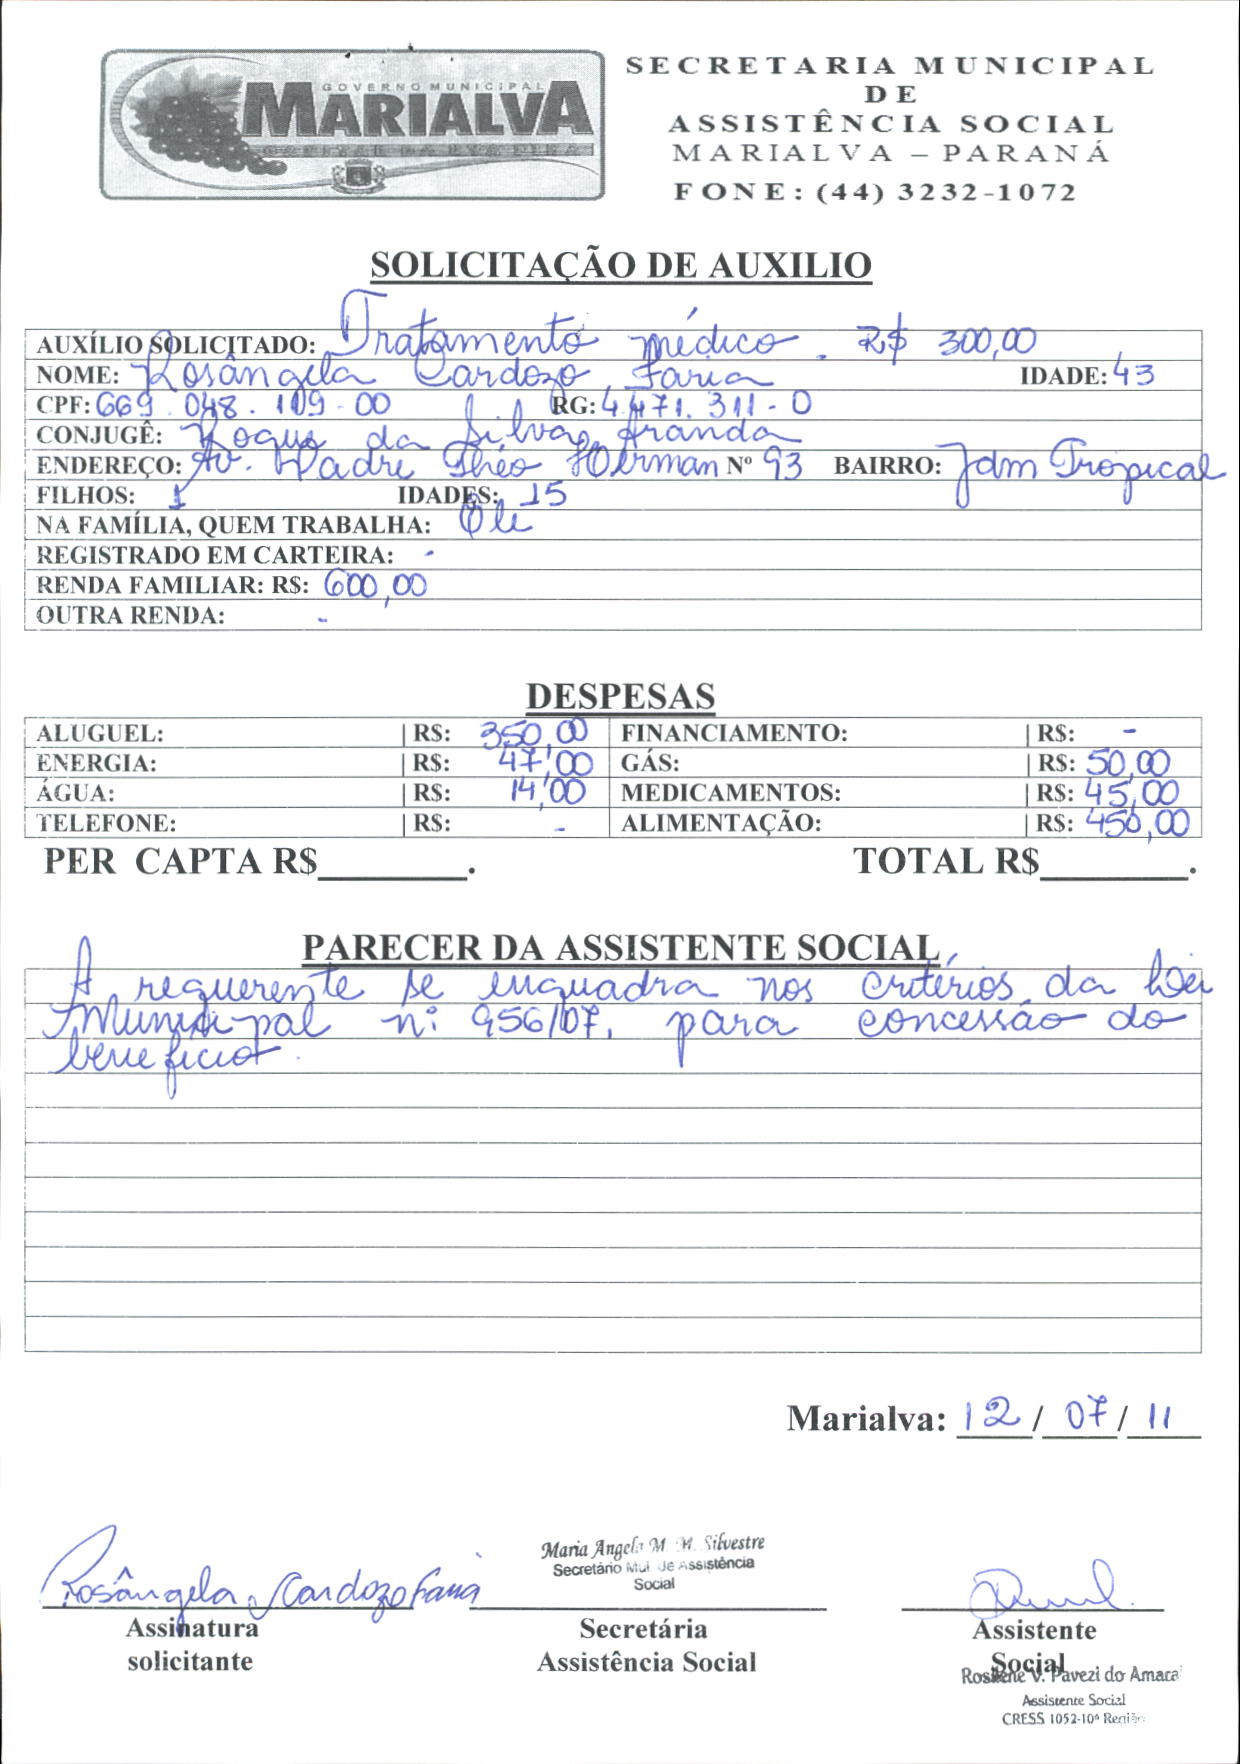 GOVERNO MUNICIPAL
MARIALVA
CAPITAL DA UVA FINA
SECRETARIA MUNICIPAL
DE
ASSISTÊNCIA SOCIAL
MARIALVA – PARANÁ
FONE: (44) 3232-1072
SOLICITAÇÃO DE AUXILIO
AUXÍLIO SOLICITADO: Tratamento médico. R$ 300,00
NOME: Rosângela Cardozo Faria IDADE: 43
CPF: 669.048.109-00 RG: 4.471.311-0
CONJUGÊ: Roque da Silva Aranda
ENDEREÇO: Av. Padre Théo Herman Nº 93 BAIRRO: Jdm Tropical
FILHOS: 1 IDADES: 15
NA FAMÍLIA, QUEM TRABALHA: Ele
REGISTRADO EM CARTEIRA: -
RENDA FAMILIAR: R$: 600,00
OUTRA RENDA: -
DESPESAS
ALUGUEL: R$: 350,00 FINANCIAMENTO: R$: -
ENERGIA: R$: 47,00 GÁS: R$: 50,00
ÁGUA: R$: 14,00 MEDICAMENTOS: R$: 45,00
TELEFONE: R$: - ALIMENTAÇÃO: R$: 450,00
PER CAPTA R$________. TOTAL R$________.
PARECER DA ASSISTENTE SOCIAL
A requerente se enquadra nos critérios da Lei
Municipal nº 956/07, para concessão do
benefício.
Marialva: 12 / 07 / 11
Rosângela Cardozo Faria
Maria Angela M. M. Silvestre
Secretário Mul. de Assistência
Social
Assinatura
solicitante
Secretária
Assistência Social
Assistente
Social
Rosilene V. Pavezi do Amaral
Assistente Social
CRESS 1052-10ª Região